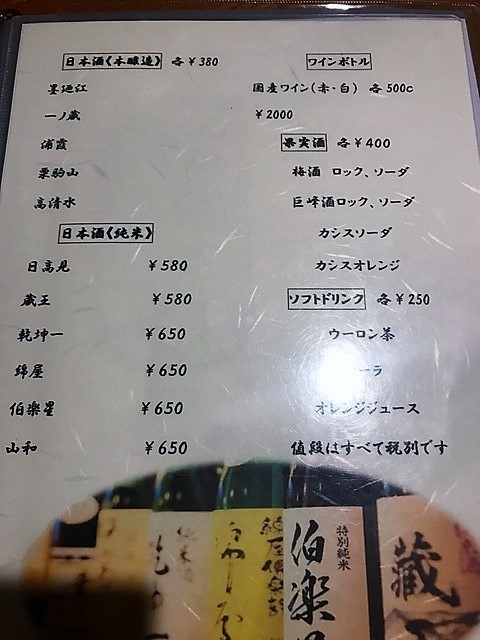 日本酒《本醸造》 各￥380
墨廼江
一ノ蔵
浦霞
栗駒山
高清水
日本酒《純米》
日高見 ￥580
蔵王 ￥580
乾坤一 ￥650
綿屋 ￥650
伯楽星 ￥650
山和 ￥650
ワインボトル
国産ワイン(赤・白) 各500c
￥2000
果実酒 各￥400
梅酒 ロック、ソーダ
巨峰酒ロック、ソーダ
カシスソーダ
カシスオレンジ
ソフトドリンク 各￥250
ウーロン茶
ーラ
オレンジジュース
値段はすべて税別です
特別純米
伯楽
蔵